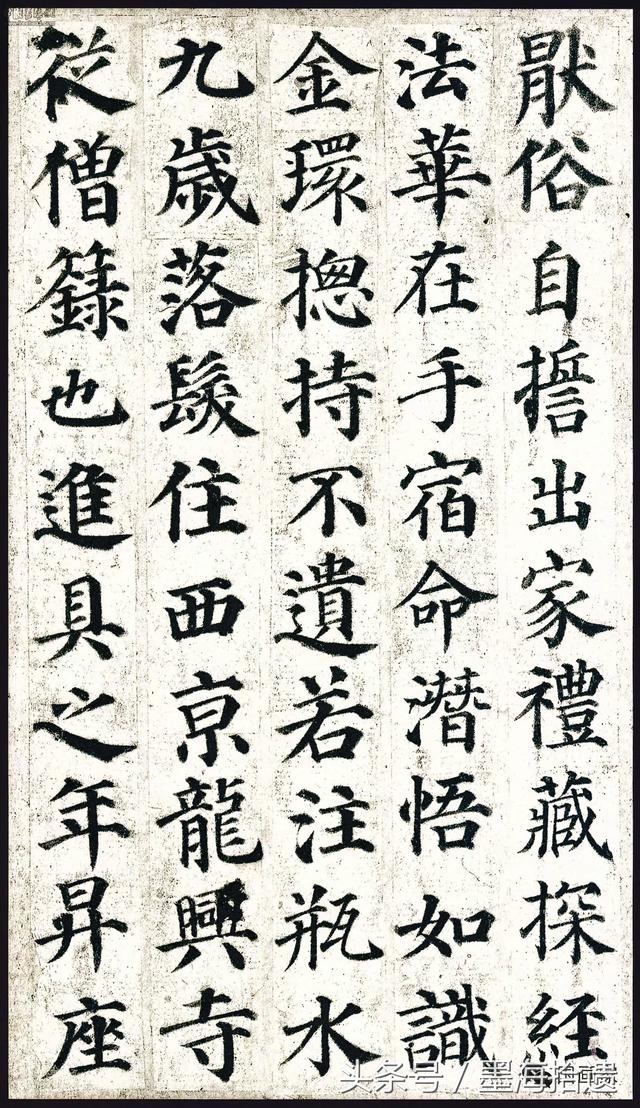 厭俗自誓出家禮藏探經
法華在手宿命潛悟如識
金環揔持不遺若注瓶水
九歲落髮住西京龍興寺
從僧籙也進具之年昇座
头条号/墨海拾遗